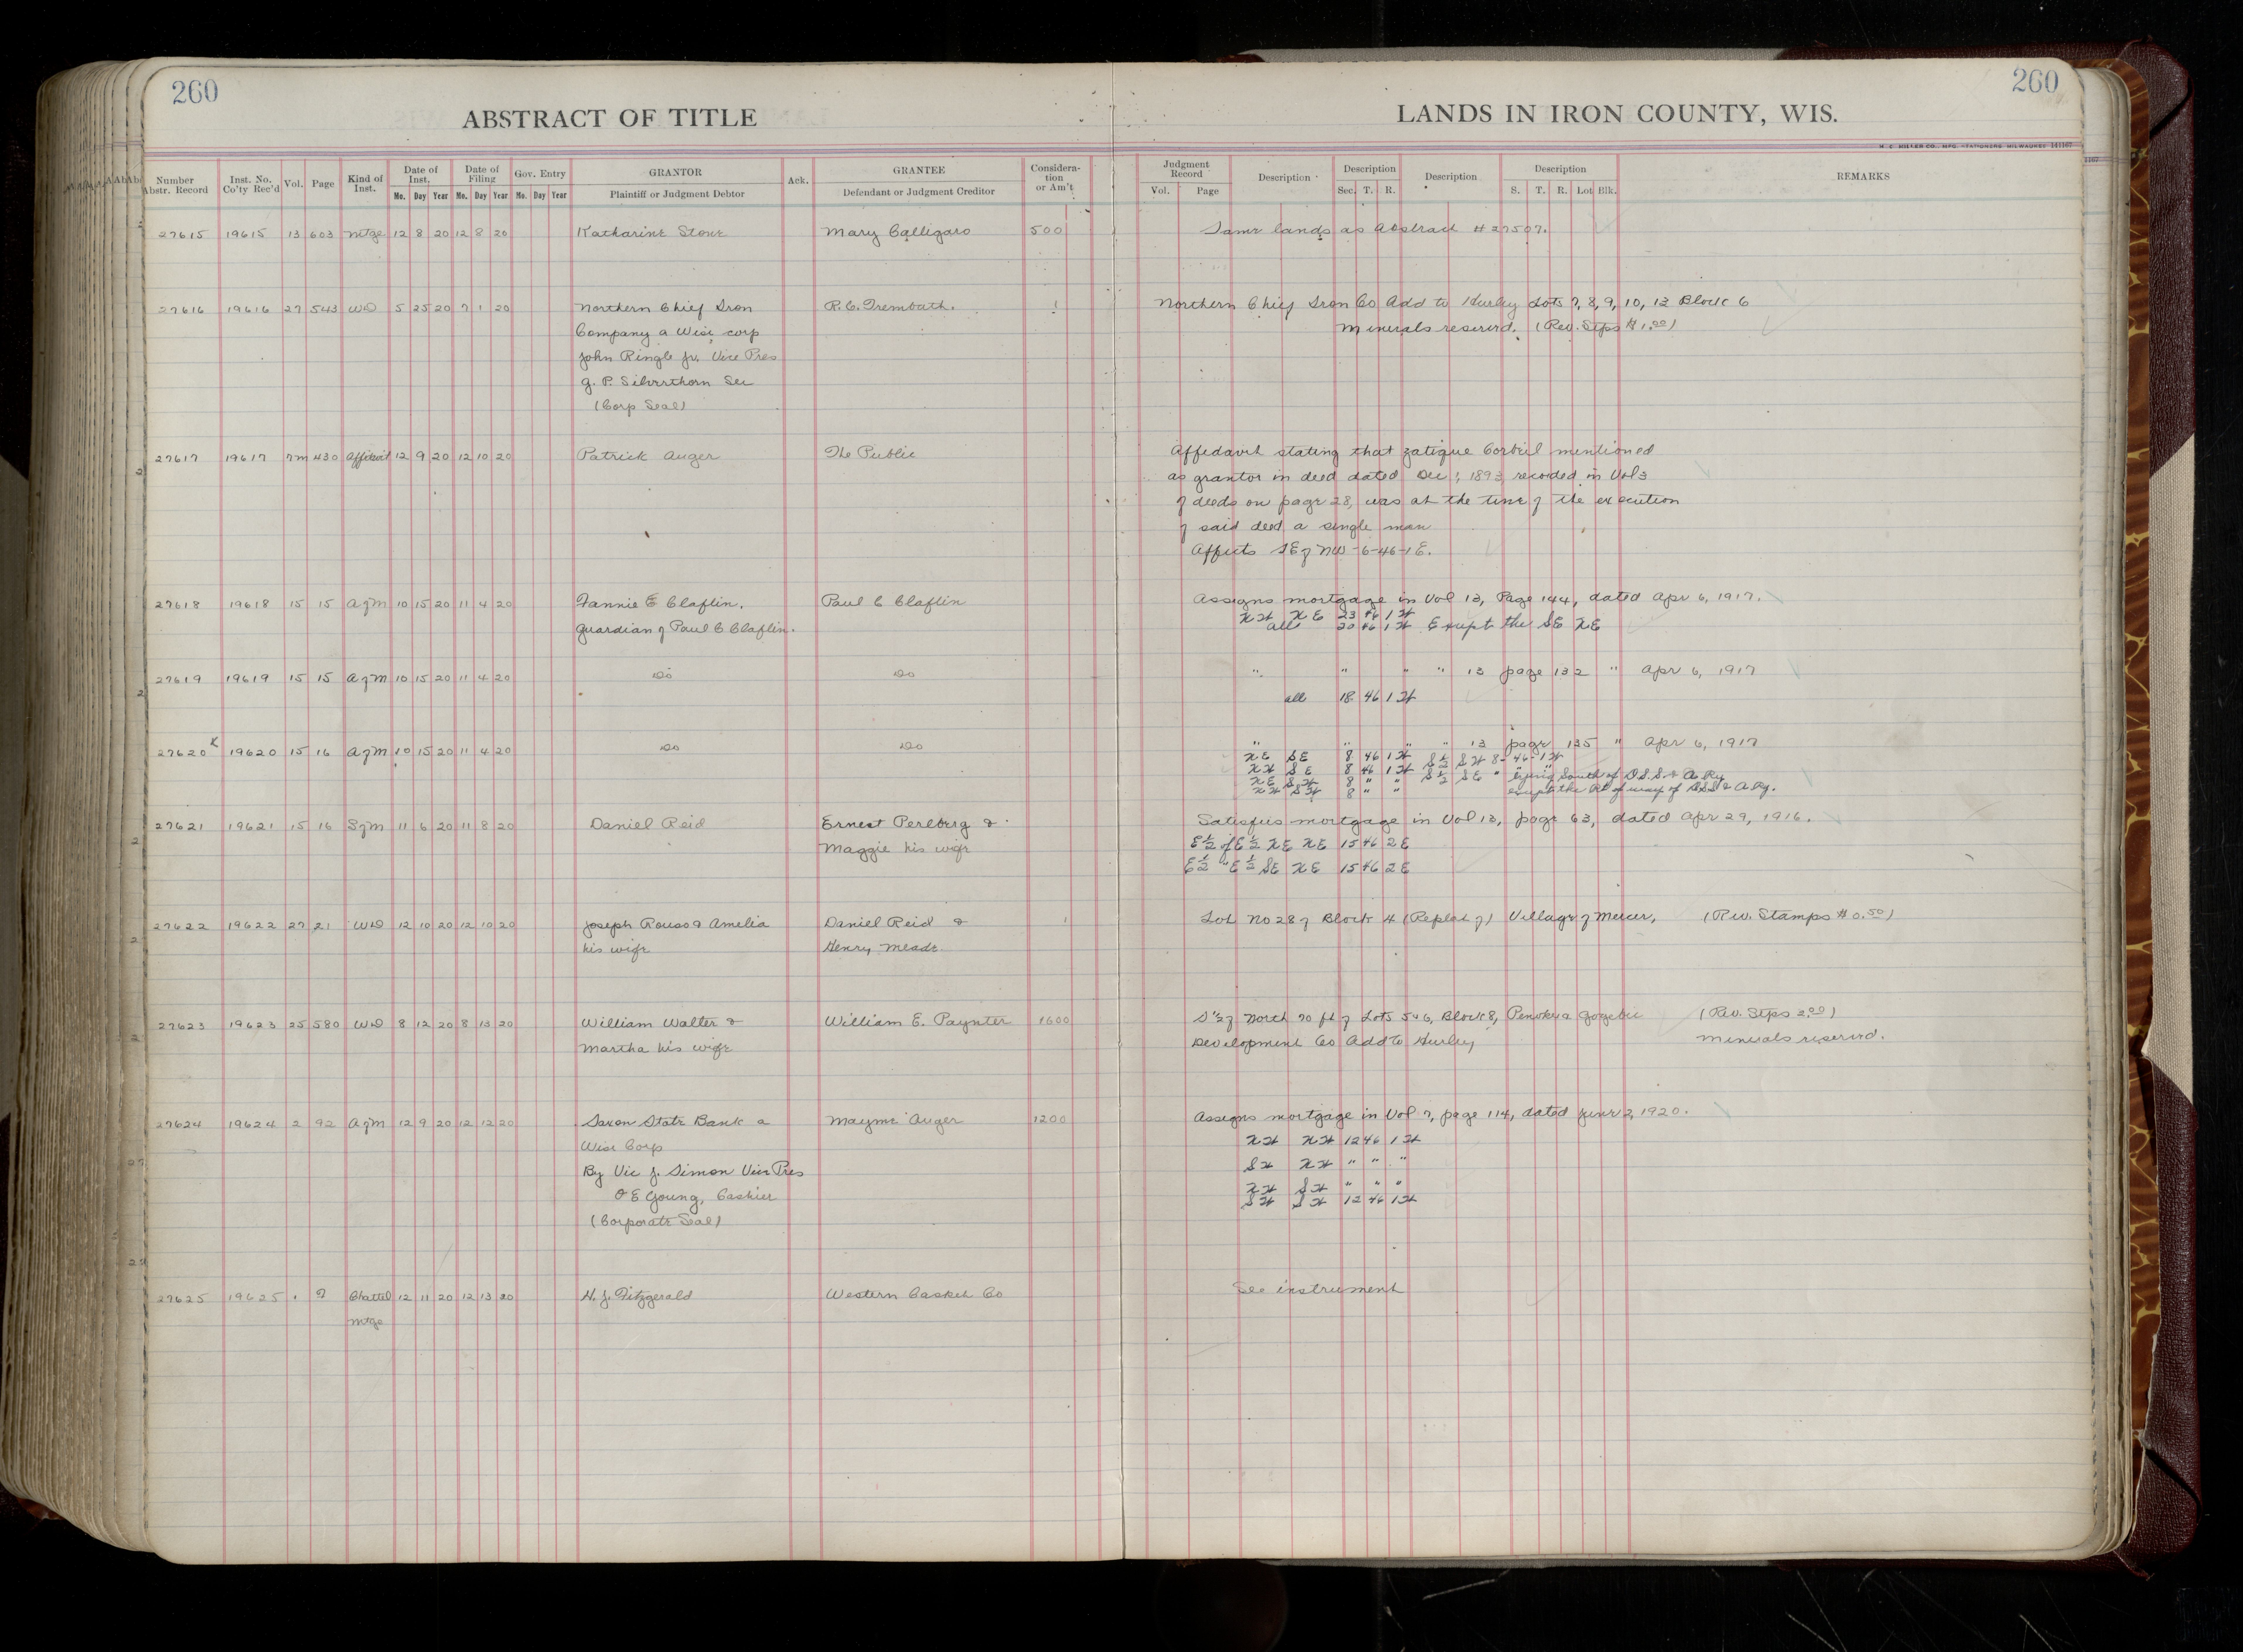 260
260
ABSTRACT OF TITLE
LANDS IN IRON COUNTY, WIS.
H. C. MILLER CO., MFG. STATIONERS, MILWAUKEE 141167
Number Abstr. Record | Inst. No. Co'ty Rec'd | Vol. | Page | Kind of Inst. | Date of Inst. Mo. Day Year | Date of Filing Mo. Day Year | Gov. Entry Mo. Day Year | GRANTOR Plaintiff or Judgment Debtor | Ack. | GRANTEE Defendant or Judgment Creditor | Considera-tion or Am't | Judgment Record Vol. Page | Description | Description Sec. T. R. | Description | Description S. T. R. Lot Blk. | REMARKS
27615 19615 13 603 Mtge 12 8 20 12 8 20 Katharine Stone Mary Calligaro 500 Same lands as Abstract #27507.
27616 19616 27 543 WD 5 25 20 7 1 20 Northern Chief Iron P.C. Trembath. 1 Northern Chief Iron Co Add to Hurley Lots 7, 8, 9, 10, 12 Block 6
Company a Wisc corp Minerals reserved. (Rev. Stps $1.00)
John Ringle Jr. Vice Pres
G. P. Silverthorn Sec
(Corp Seal)
27617 19617 7m 430 Affidavit 12 9 20 12 10 20 Patrick Auger The Public Affidavit stating that Zatique Corbiel mentioned
as grantor in deed dated Dec 1, 1893, recorded in Vol 3
of deeds on page 28, was at the time of the execution
of said deed a single man
Affects SE of NW-6-46-1E.
27618 19618 15 15 A of M 10 15 20 11 4 20 Fannie E Claflin, Paul C Claflin Assigns mortgage in Vol 13, Page 144, dated Apr 6, 1917.
NW NE 23 46 1 W
Guardian of Paul C Claflin. all 20 46 1 W Except the SE NE
27619 19619 15 15 A of M 10 15 20 11 4 20 Do Do " " " " 13 page 132 " Apr 6, 1917
all 18 46 1 W
27620 x 19620 15 16 A of M 10 15 20 11 4 20 Do Do " " " " 13 page 135 " Apr 6, 1917
NE SE 8 46 1 W S½ SW 8-46-1W
NW SE 8 46 1 W S½ SE " " " lying South of D.S.S.& A. Ry
NE SW 8 " "
NW SW 8 " " except the Rt of way of D.S.S & A. Ry.
27621 19621 15 16 S of M 11 6 20 11 8 20 Daniel Reid Ernest Perlberg & Satisfies mortgage in Vol 13, page 63, dated Apr 29, 1916.
Maggie his wife E½ of E½ NE NE 15 46 2E
E½ " E½ SE NE 15 46 2E
27622 19622 27 21 WD 12 10 20 12 10 20 Joseph Rouso & Amelia Daniel Reid & 1 Lot No 28 of Block 4 (Replat of) Village of Mercer, (Rev. Stamps $0.50)
his wife Henry Meade
27623 19623 25 580 WD 8 12 20 8 13 20 William Walter & William E. Paynter 1600 S ½ of North 70 ft of Lots 5 & 6, Block 8, Penokee & Gogebic (Rev. Stps 2.00)
Martha his wife Development Co Add to Hurley Minerals reserved.
27624 19624 2 92 A of M 12 9 20 12 12 20 Saxon State Bank a Mayme Auger 1200 Assigns mortgage in Vol 7, page 114, dated June 2, 1920.
Wisc Corp NW NW 12 46 1 W
By Vic J. Simon Vice Pres SW NW " " "
O E Young, Cashier NW SW " " "
SW SW 12 46 1 W
(Corporate Seal)
27625 19625 1 7 Chattel 12 11 20 12 13 20 H. J. Fitzgerald Western Casket Co See instrument
Mtge